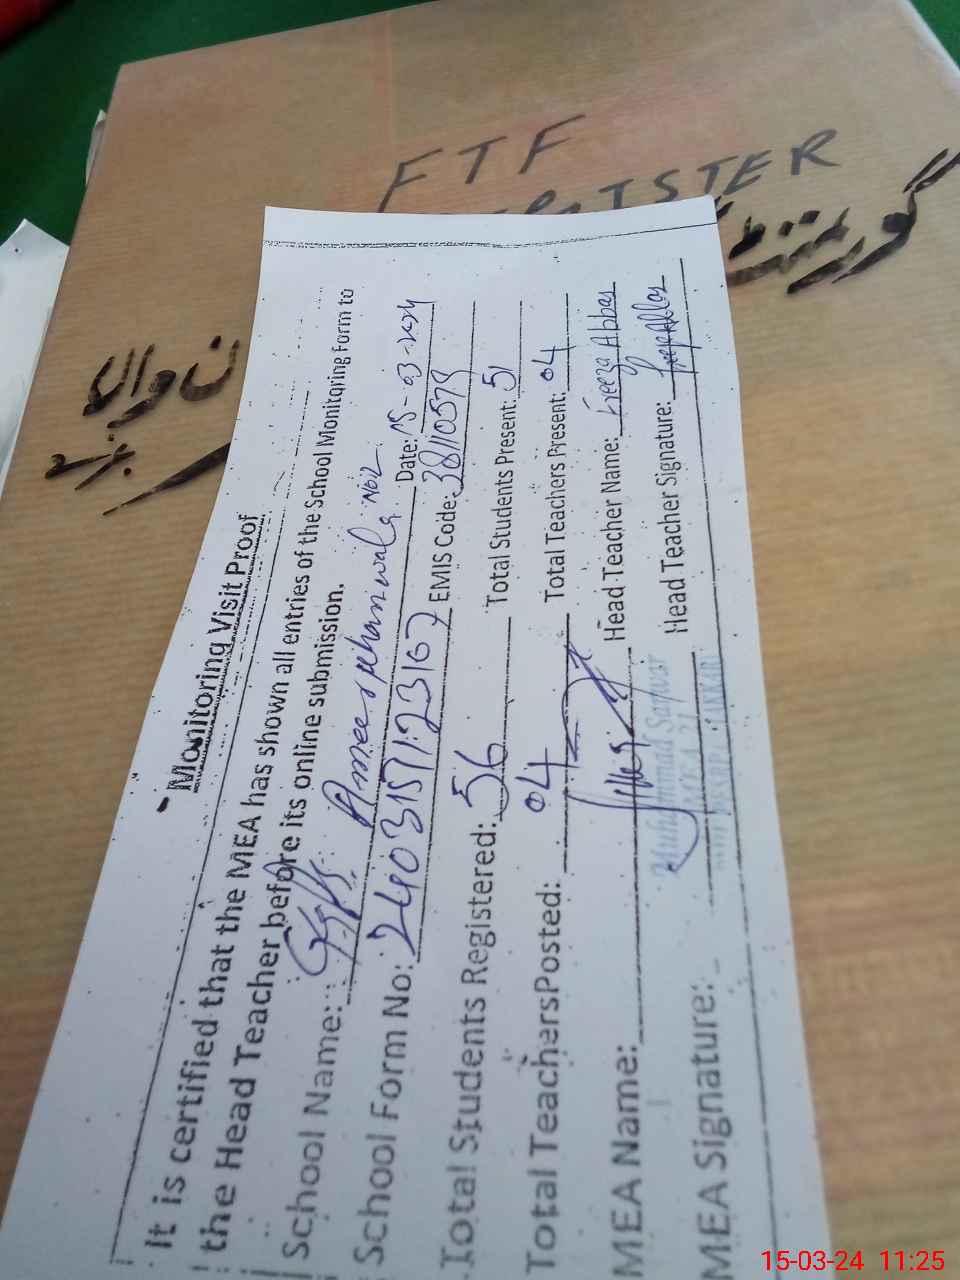 FTF
REGISTER
گورنمنٹ
Monitoring Visit Proof
It is certified that the MEA has shown all entries of the School Monitoring Form to
the Head Teacher before its online submission.
School Name: Date: 15-03-2024
School Form No: 24031571:23167 EMIS Code: 38110579
Total Students Registered: 56 Total Students Present: 51
Total TeachersPosted: 04 Total Teachers Present: 04
MEA Name: Head Teacher Name: Freeza Abbas
MEA Signature: Head Teacher Signature:
Muhammad Safdar
15-03-24 11:25